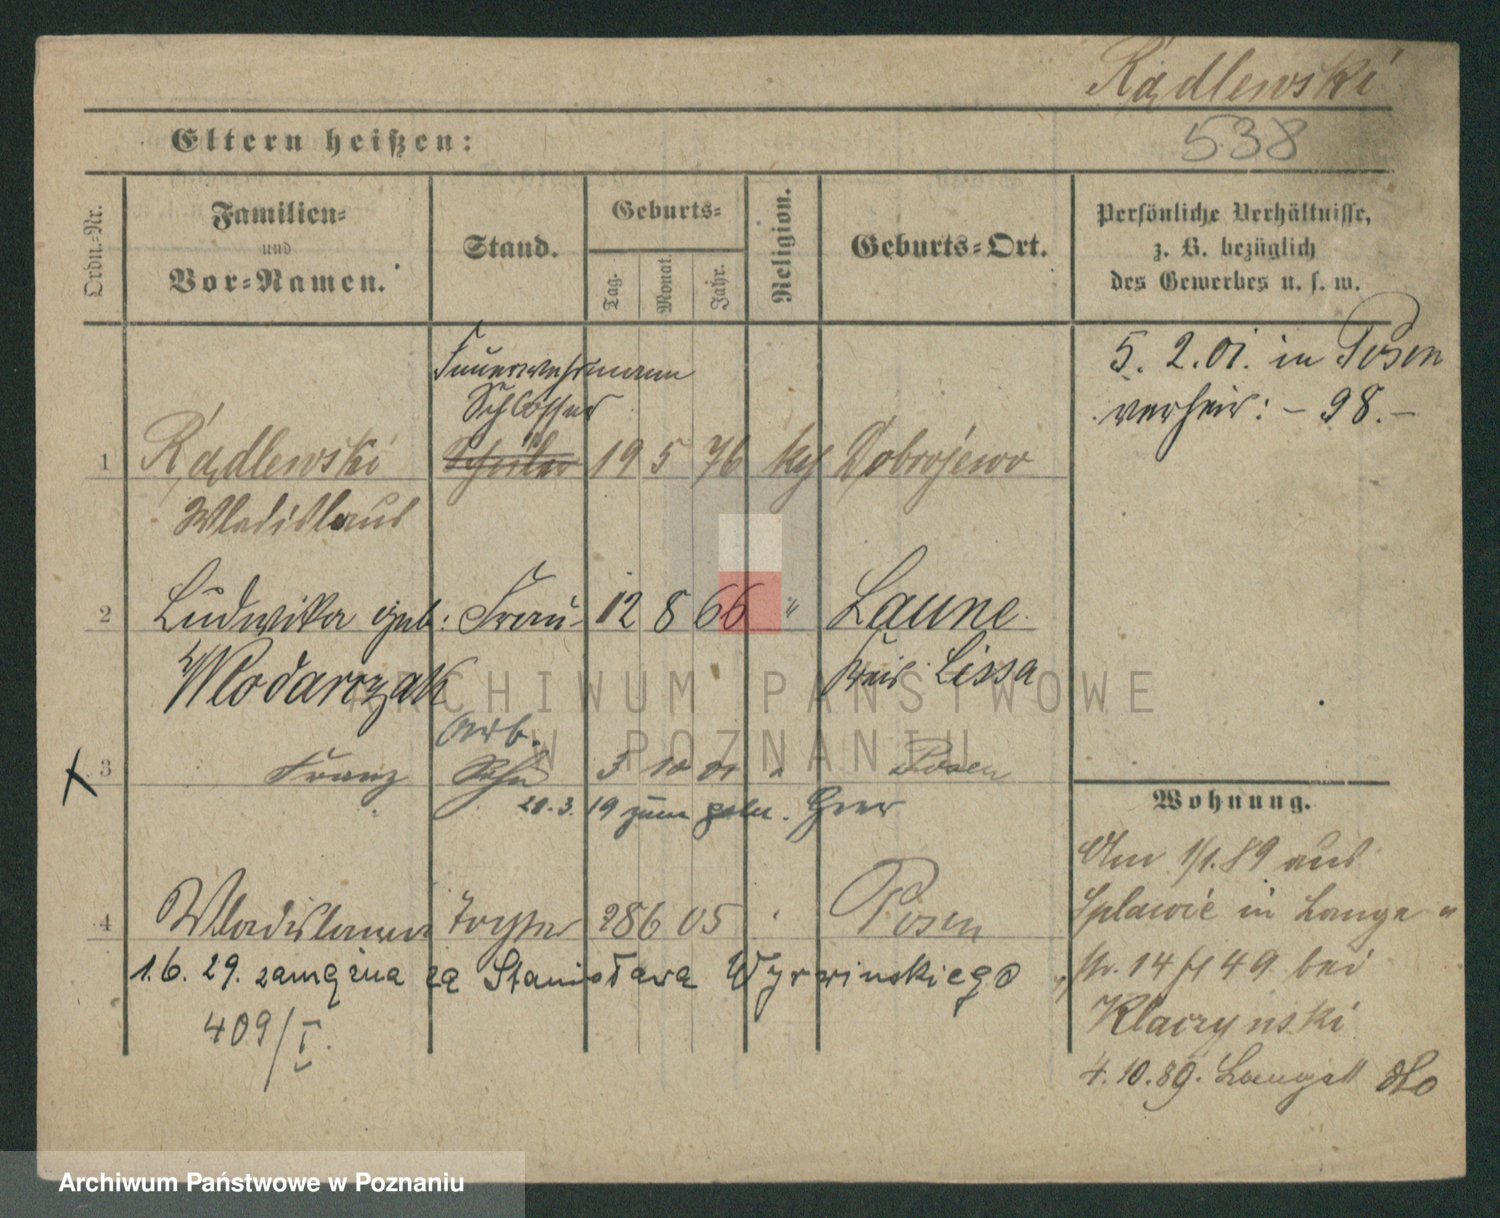 Rądlewski
538
Eltern heißen:
Ordn.-Nr.
Familien-
und
Vor-Namen.
Stand.
Geburts-
Tag.
Monat.
Jahr.
Religion.
Geburts-Ort.
Persönliche Verhältnisse,
z. B. bezüglich
des Gewerbes u. s. w.
5. 2. 01. in Posen
verheir: - 98. -
Feuerwehrmann
Schlosser
1 Rądlewski Schüler 19 5 76 kth Dobrojewo
Wladislaus
2 Ludwika geb: Frau 12 8 66 " Laune
Wlodarczak Kreis Lissa
Arb.
3 Franz Sohn 3 10 01 " Posen
28. 3. 19 zum poln. Heer
4 Wladislawa Tochter 28 6 05 " Posen
1.6. 29. zamężna za Stanisława Wyrwinskiego
409/I.
Wohnung.
Am 1/1. 89 aus
Splawie in Lange
str. 14 bei
Klaczynski
4. 10. 89. Langestr dto
ARCHIWUM PAŃSTWOWE
W POZNANIU
Archiwum Państwowe w Poznaniu